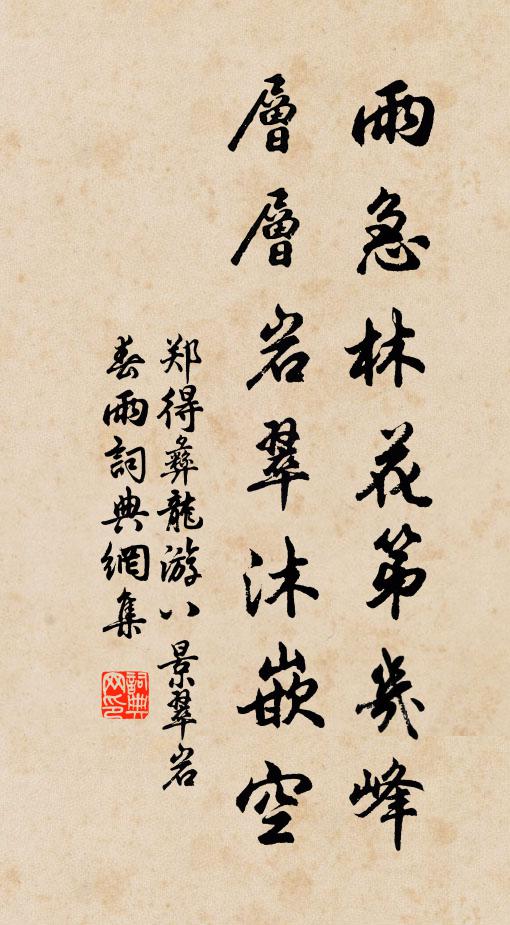 雨急林花第幾峰
層層岩翠沐嵌空
郑得彝龍游八景翠岩
春雨詞典網集
詞典网印